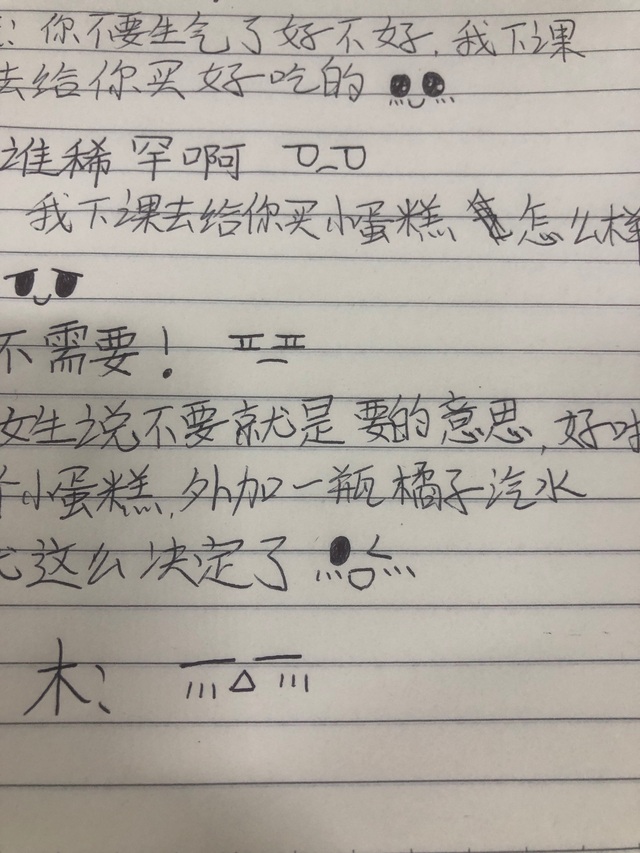 ：你不要生气了好不好，我下课
去给你买好吃的
谁稀罕啊
我下课去给你买小蛋糕 怎么样
不需要！
女生说不要就是要的意思，好吧
个小蛋糕，外加一瓶橘子汽水
这么决定了
木：